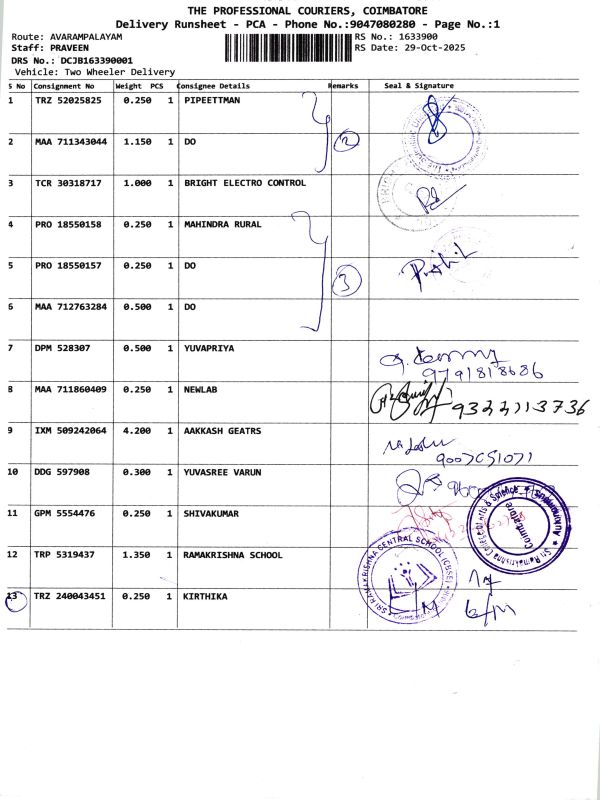 THE PROFESSIONAL COURIERS, COIMBATORE
Delivery Runsheet - PCA - Phone No.:9047080280 - Page No.:1
Route: AVARAMPALAYAM
RS No.: 1633900
Staff: PRAVEEN
RS Date: 29-Oct-2025
DRS No.: DCJB163390001
Vehicle: Two Wheeler Delivery
S No Consignment No Weight PCS Consignee Details Remarks Seal & Signature
1 TRZ 52025825 0.250 1 PIPEETTMAN
2 MAA 711343044 1.150 1 DO 2
3 TCR 30318717 1.000 1 BRIGHT ELECTRO CONTROL
4 PRO 18550158 0.250 1 MAHINDRA RURAL
5 PRO 18550157 0.250 1 DO 3
6 MAA 712763284 0.500 1 DO
7 DPM 528307 0.500 1 YUVAPRIYA
9791818686
8 MAA 711860409 0.500 1 NEWLAB
9322113736
9 IXM 509242064 4.200 1 AAKKASH GEATRS
9007051071
10 DDG 597908 0.300 1 YUVASREE VARUN
11 GPM 5554476 0.250 1 SHIVAKUMAR
12 TRP 5319437 1.350 1 RAMAKRISHNA SCHOOL
SRI RAMAKRISHNA CENTRAL SCHOOL (CBSE)
Coimbatore
13 TRZ 240043451 0.250 1 KIRTHIKA